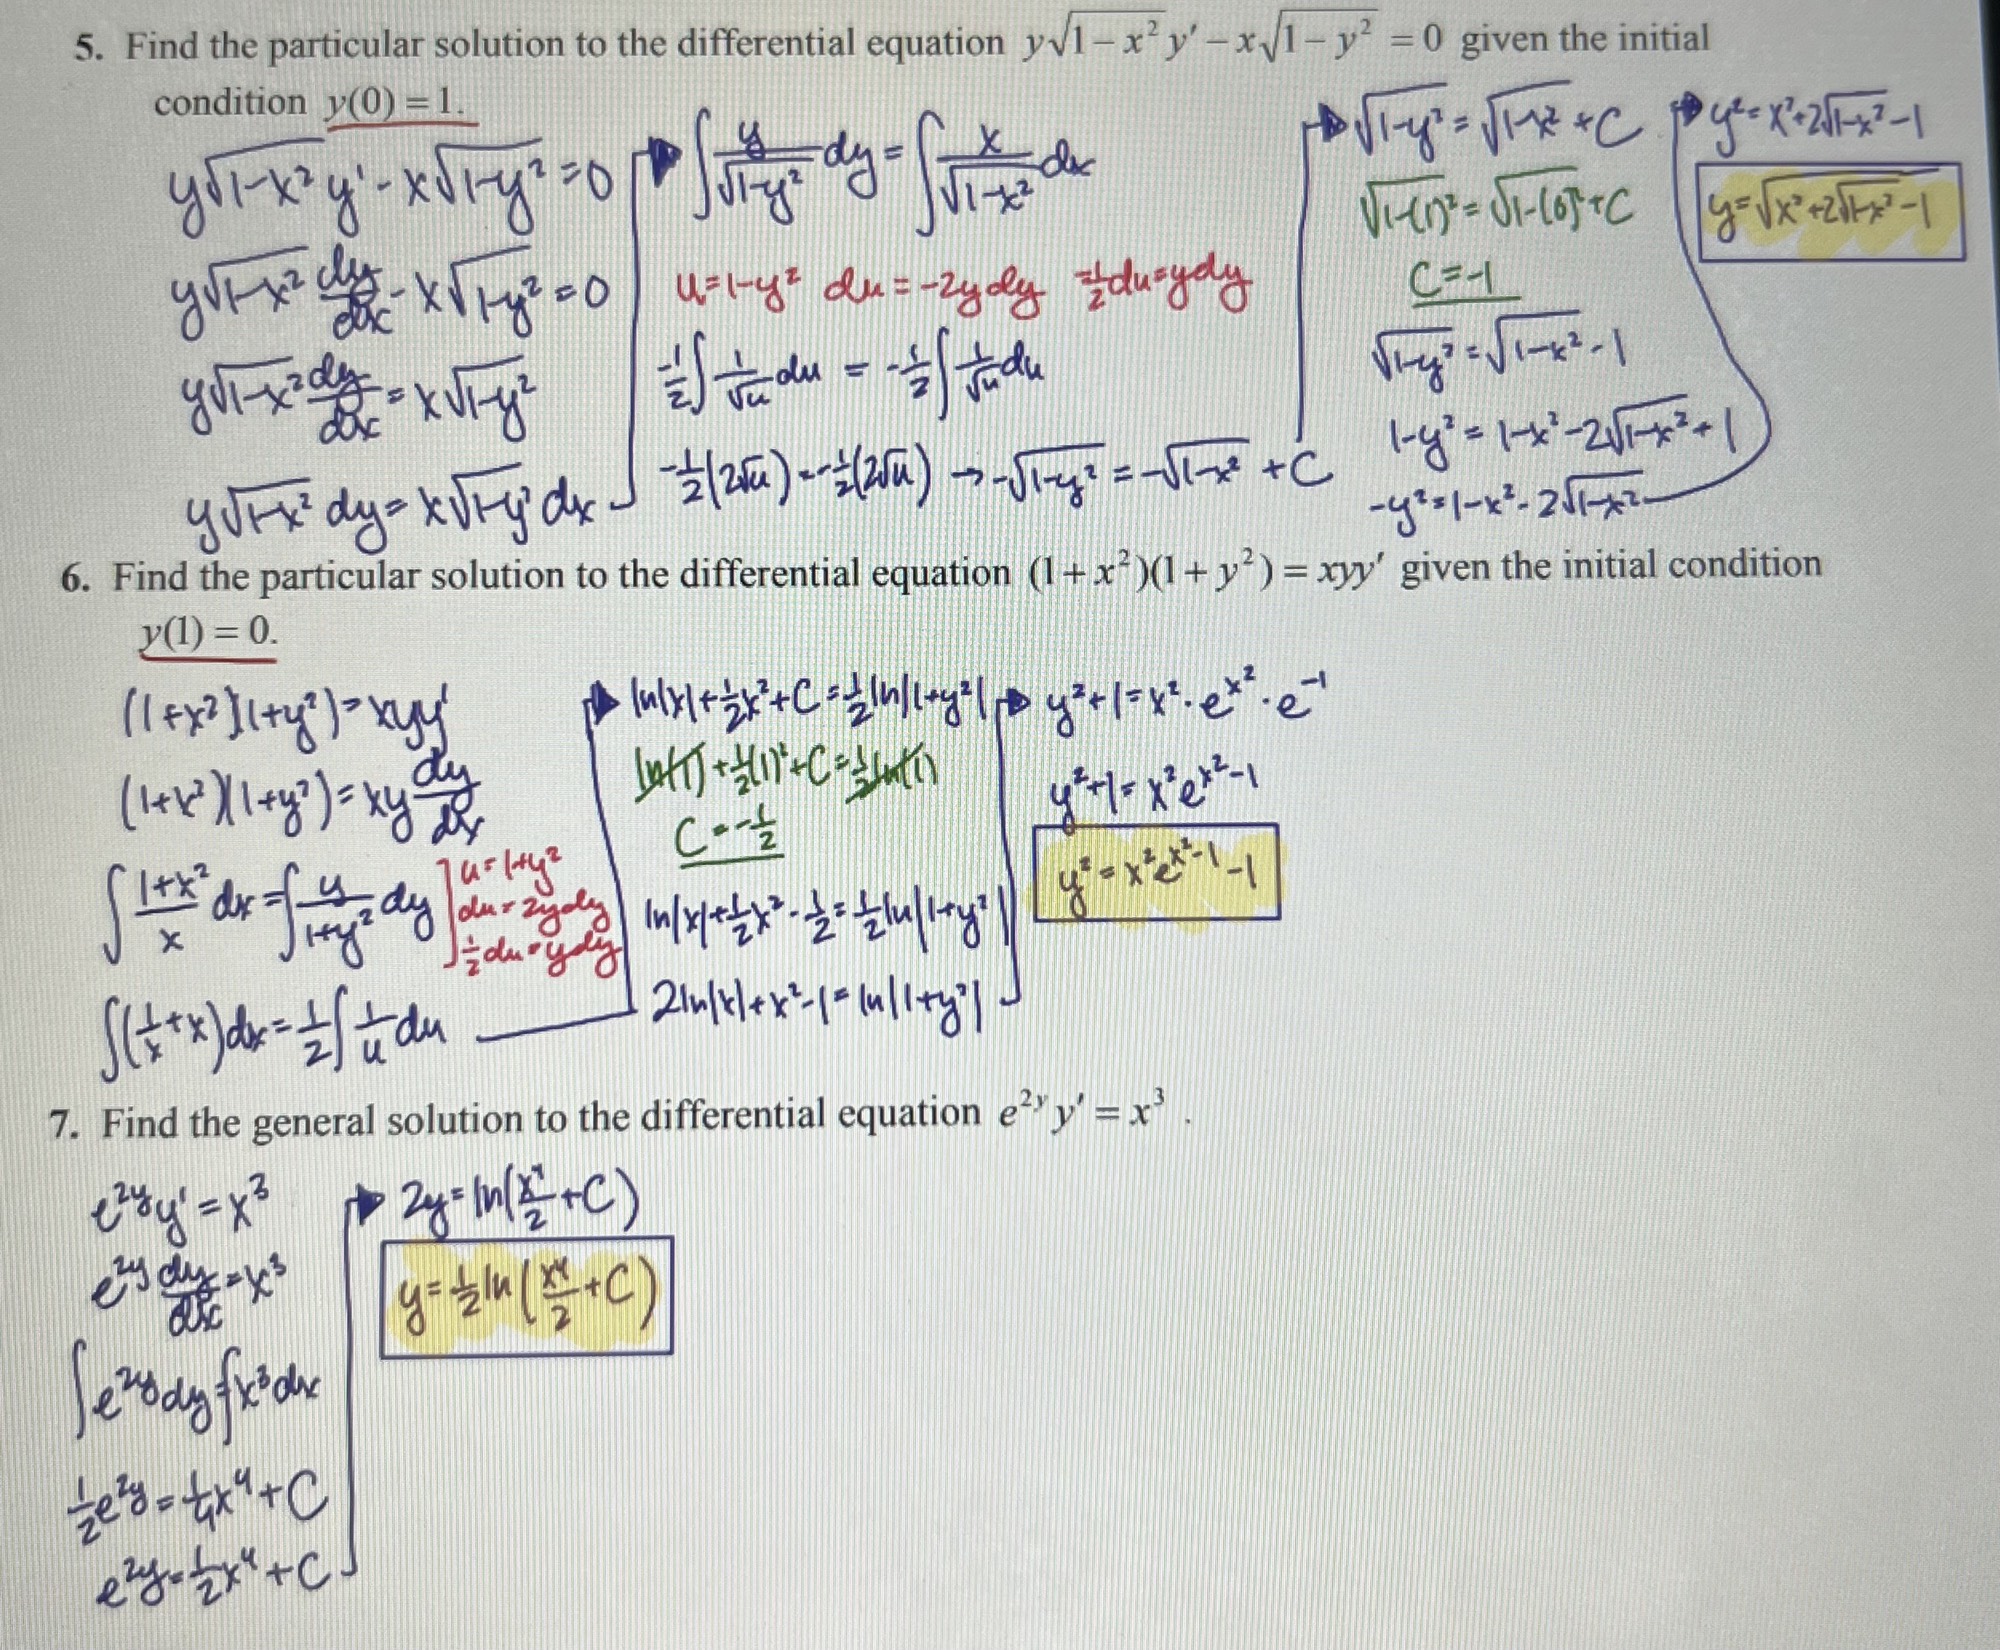 5. Find the particular solution to the differential equation y√(1−x²) y′ − x√(1−y²) = 0 given the initial
condition y(0) = 1.
y√(1-x²) y' - x√(1-y²) = 0
y√(1-x²) dy/dx - x√(1-y²) = 0
y√(1-x²) dy/dx = x√(1-y²)
y√(1-x²) dy = x√(1-y²) dx
∫ y/√(1-y²) dy = ∫ x/√(1-x²) dx
u=1-y² du=-2ydy -1/2 du=ydy
-1/2 ∫ 1/√u du = -1/2 ∫ 1/√u du
-1/2(2√u) = -1/2(2√u) → -√(1-y²) = -√(1-x²) + C
√(1-y²) = √(1-x²) + C
√(1-(1)²) = √(1-(0)²) + C
C=-1
√(1-y²) = √(1-x²) - 1
1-y² = 1-x² - 2√(1-x²) + 1
-y² = 1-x² - 2√(1-x²)
y² = x² + 2√(1-x²) - 1
y = √(x² + 2√(1-x²) - 1)
6. Find the particular solution to the differential equation (1+x²)(1+y²) = xyy′ given the initial condition
y(1) = 0.
(1+x²)(1+y²) = xyy'
(1+x²)(1+y²) = xy dy/dx
∫ (1+x²)/x dx = ∫ y/(1+y²) dy
u=1+y²
du=2ydy
1/2 du=ydy
∫(1/x + x)dx = 1/2 ∫ 1/u du
ln|x| + 1/2 x² + C = 1/2 ln|1+y²|
ln(1) + 1/2(1)² + C = 1/2 ln(1)
C = -1/2
ln|x| + 1/2 x² - 1/2 = 1/2 ln|1+y²|
2ln|x| + x² - 1 = ln|1+y²|
y²+1 = x² · e^(x²) · e^(-1)
y²+1 = x²e^(x²-1)
y² = x²e^(x²-1) - 1
7. Find the general solution to the differential equation e^(2y) y′ = x³ .
e^(2y) y' = x³
e^(2y) dy/dx = x³
∫e^(2y) dy = ∫x³ dx
1/2 e^(2y) = 1/4 x⁴ + C
e^(2y) = 1/2 x⁴ + C
2y = ln(x⁴/2 + C)
y = 1/2 ln(x⁴/2 + C)